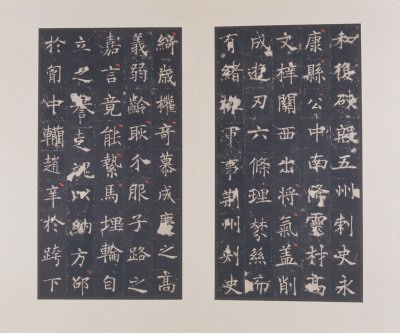 和復硤毅五州刺史永
康縣公中南降靈材高
文梓關西出將氣蓋削
成遊刃六條理棼絲而
有緒軍事荊州刺史
綺歲權奇慕成慶之高
義弱齡耿介服子路之
嘉言竟能縶馬埋輪自
立之以納方邵
於胸中轥趙辛於跨下